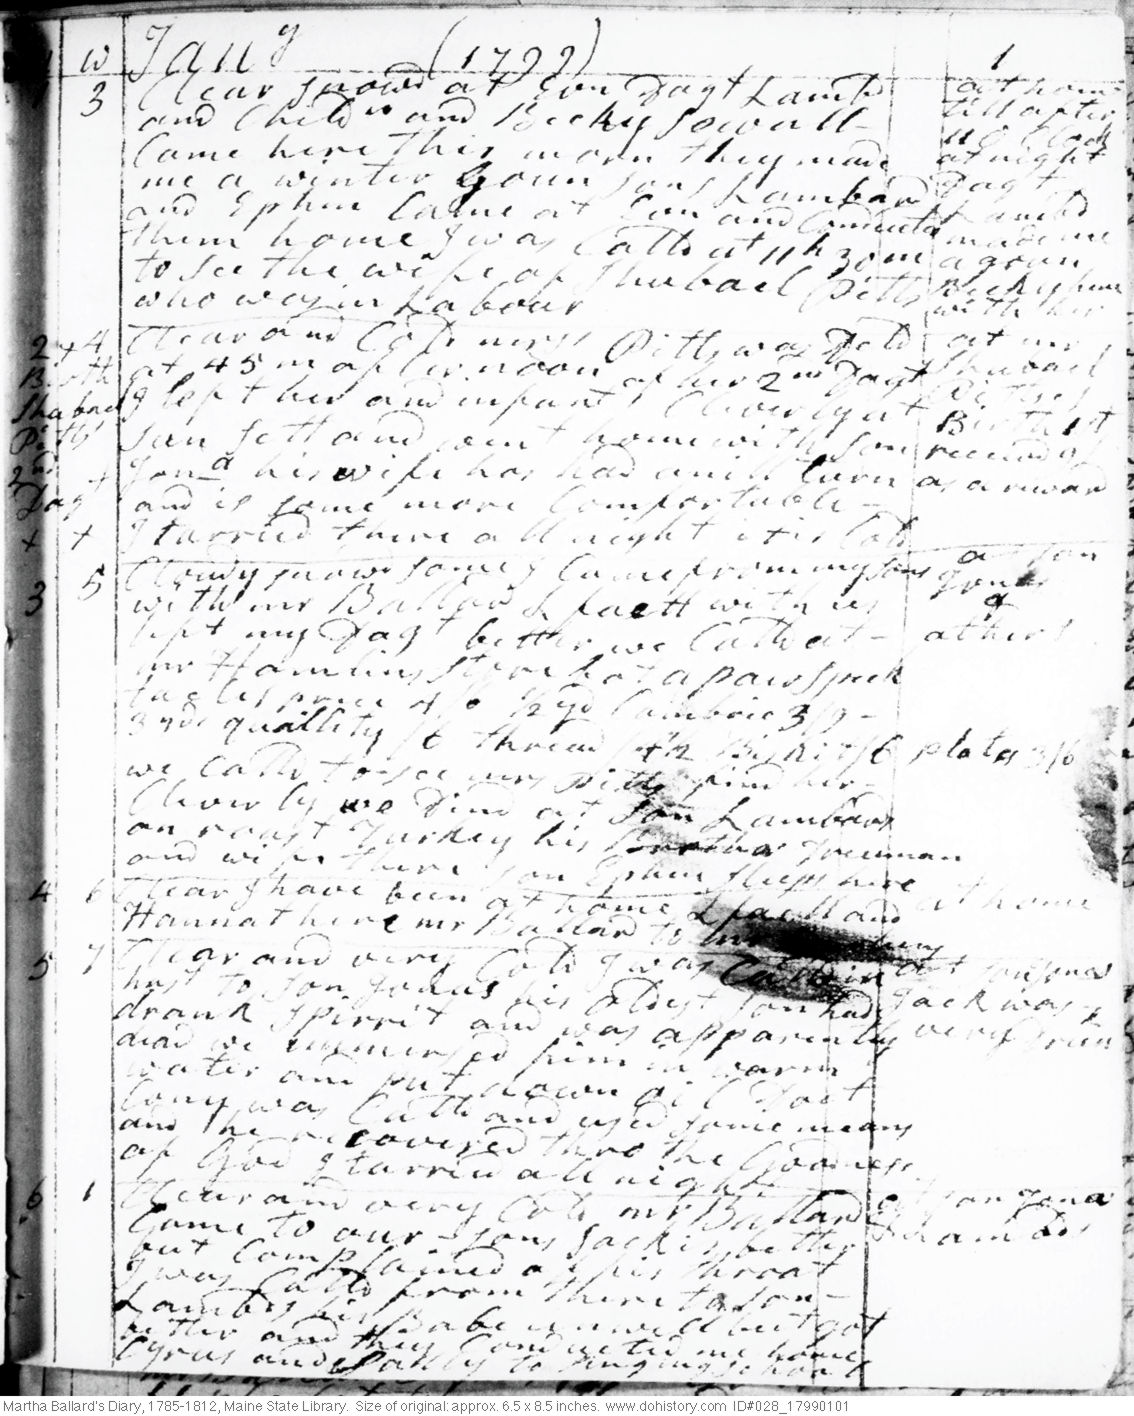 w Jany (1799) 1
1 3 Clear snowd at Eve Dagt Lambd at home
and Childn and Becky Sowall till after
Came here this morn they made 11 O Clock
me a winter Goun sons Lambard at night Dagt
and Ephm Came at Evn and Conducted Lambd
them home I was Calld at 11 h 30 m made me a goun
to See the wife of Shubael Pitts Becky here
who was in Labour with her
2 4 Clear and Cold mrss Pitts was Deld at mr
Birth at 45 m after noon of her 2nd Dagt Shubael
Shubael I left her and infant Cleverly at Pittses
Pitts Sun Sett and went home with Son Birth 1st
2nd Jona his wife has had an ill turn received / as a reward
Dagt and is some more Comfortable -
x x I tarried there all night it is Cold
3 5 Cloudy snowd some I Came from my sons at son
with mr Ballard & Factt with us Jonas
left my Dagt better we Calld at - & at hers
mr Hamlins Store bot a pair Speck
tacles price
3 yds quallity thread plates 3/6
we Calld to see mrs Pitts find her -
Cleverly we Dind at Son Lambards
on roast Turkey his Brother Freeman
and wife there son Ephm sleeps here
4 6 Clear I have been at home & at home
Hannah here mr Ballard to mr
5 7 Clear and very Cold I was Calld in at son Jonas
hast to Son Jonas his oldest son had Jack was
drank spirrit and was apparently very
dead we immersed him in warm
water and put down oil Doct
Cony was Calld and used some means
and he recovered thro the Goodness
of God I tarried all night
6 1 Clear and very Cold mr Ballard at son Jona
Came to our sons Jack is better & Lambds
but Complained of his throat
I was Calld from there to son -
Lambds his Babe unwell but got
better and they Conducted me home
Cyrus and Dolly to singing school
Martha Ballard's Diary, 1785-1812, Maine State Library. Size of original: approx. 6.5 x 8.5 inches. www.dohistory.com ID#028_17990101